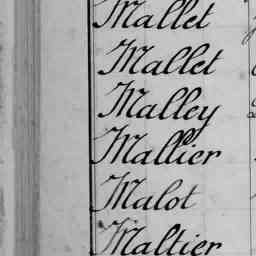 Mallet
Mallet
Malley
Mallier
Malot
Maltier